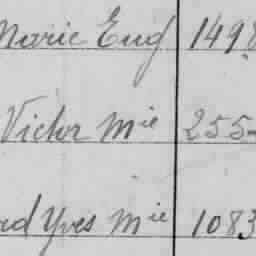 Marie Eug 1498
Victor Mie 255
Yves Mie 1083